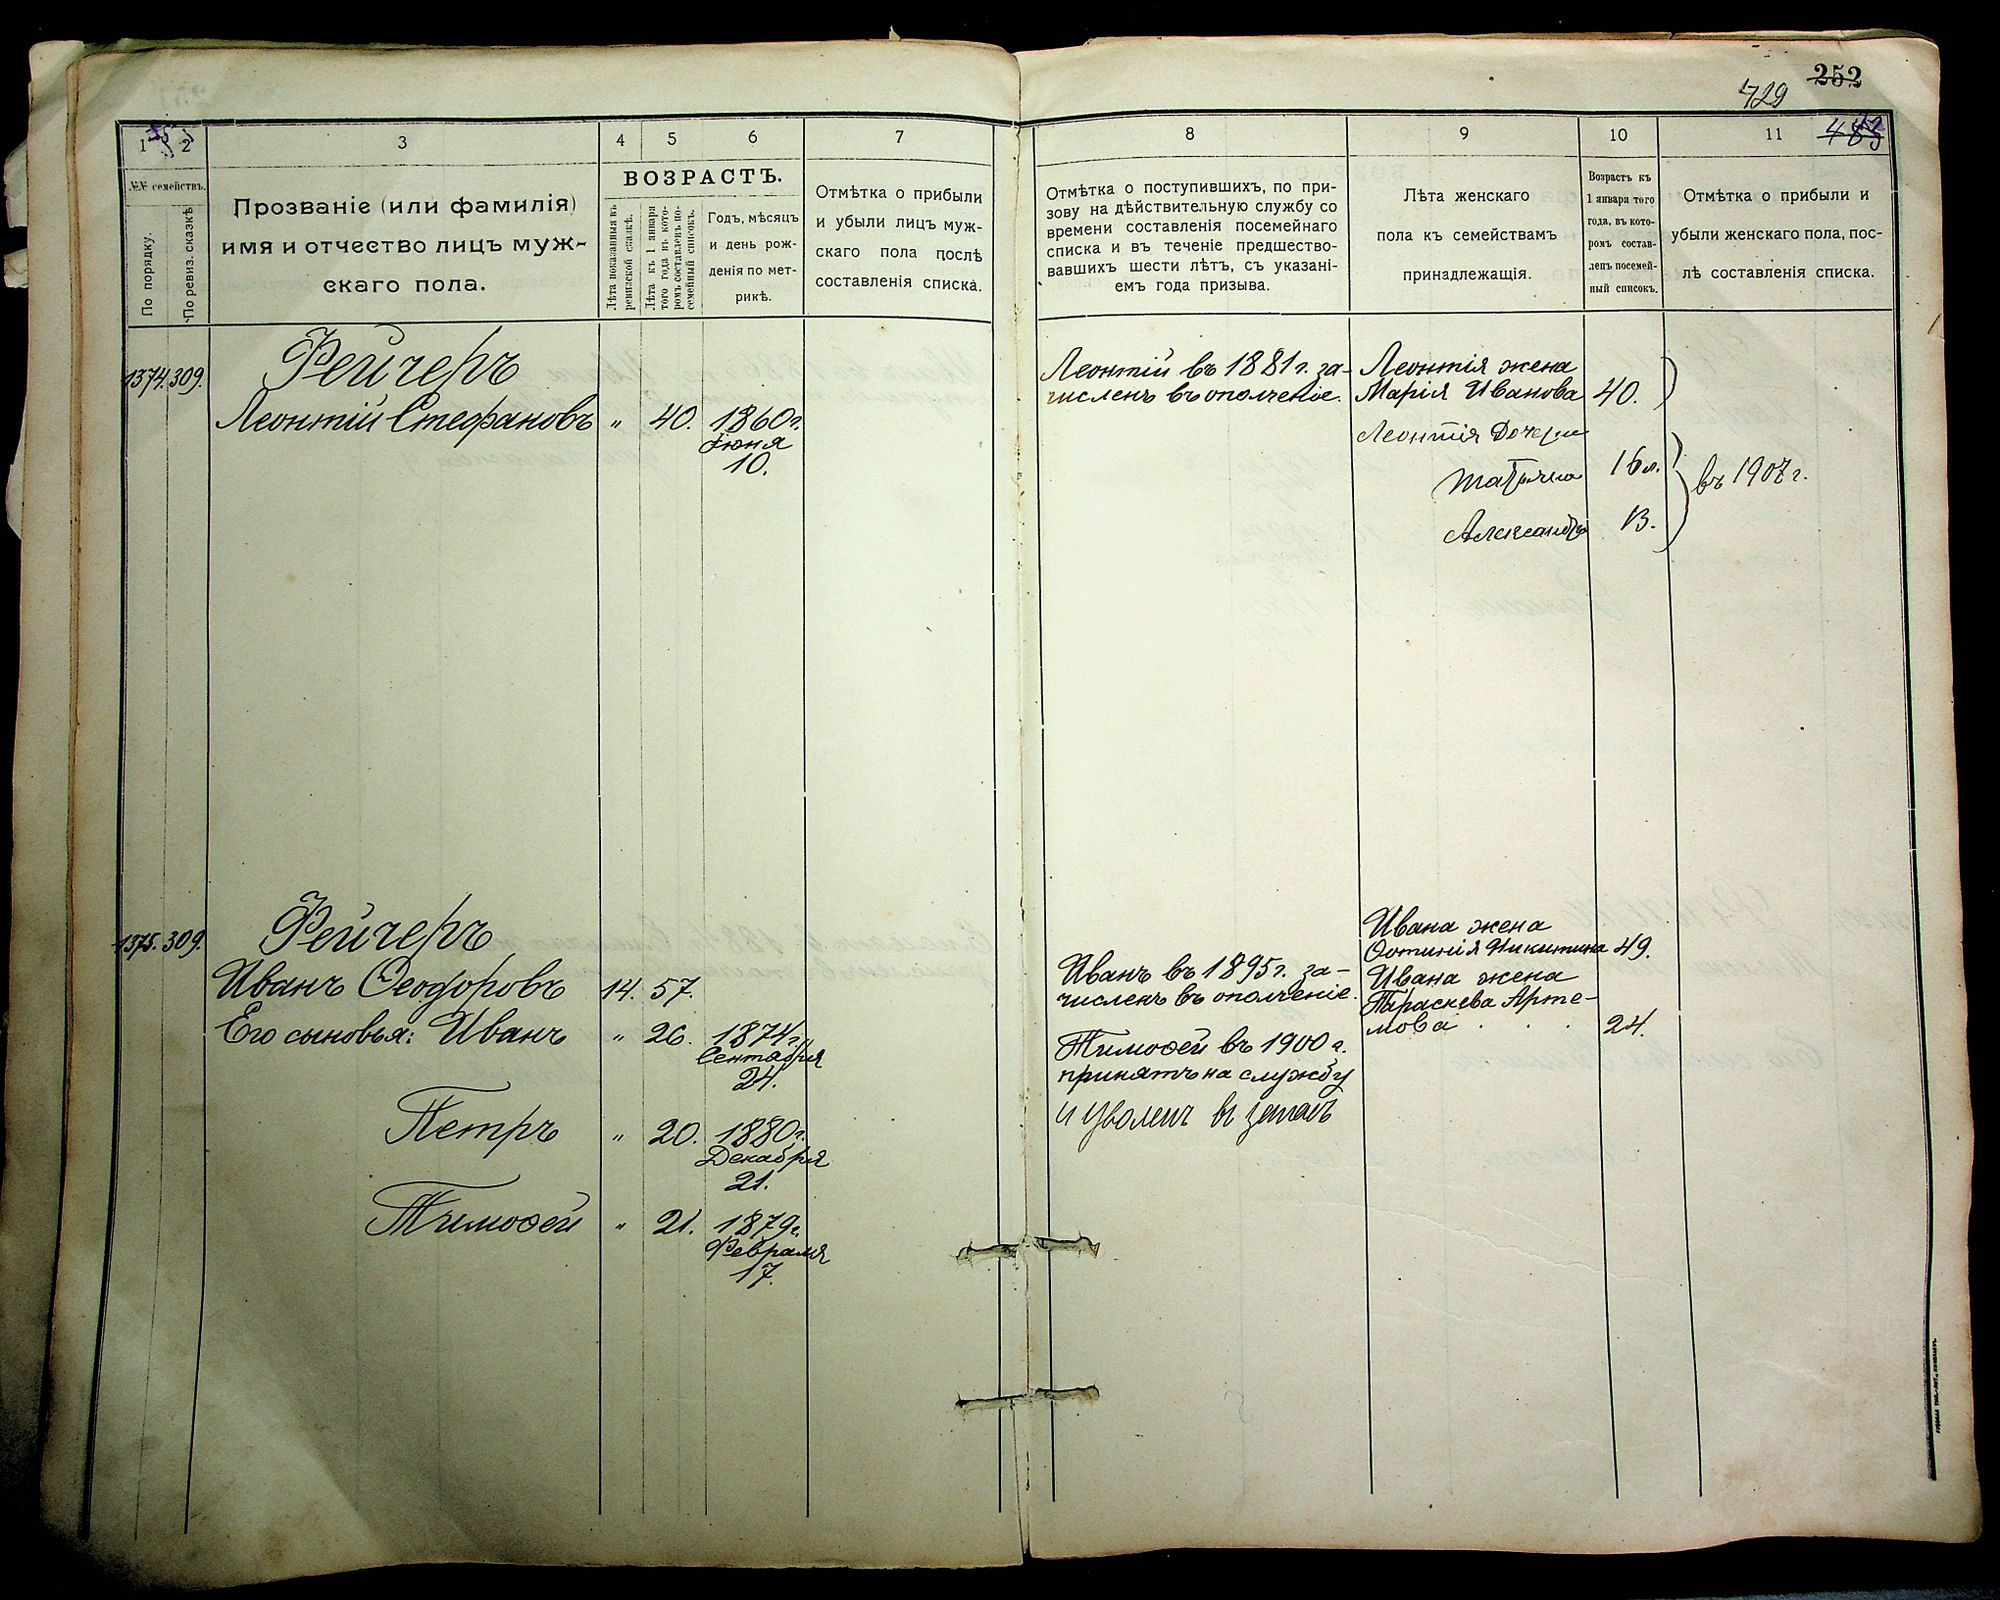 252
729
483
1
2
3
4
5
6
7
№№ семействъ.
По порядку.
По ревиз. сказкѣ
Прозваніе (или фамилія)
имя и отчество лицъ муж-
скаго пола.
ВОЗРАСТЪ.
Лѣта показанныя въ
ревизской сказкѣ.
Лѣта къ 1 января
того года къ кото-
ромъ составленъ по-
семейный списокъ.
Годъ, мѣсяцъ
и день рож-
денія по мет-
рикѣ.
Отмѣтка о прибыли
и убыли лицъ муж-
скаго пола послѣ
составленія списка.
1374. 309.
Рейчеръ
Леонтій Стефановъ " 40. 1860 г.
Іюня
10.
1375. 309.
Рейчеръ
Иванъ Ѳеодоровъ 14. 57.
Его сыновья: Иванъ " 26. 1874 г.
Сентября
24.
Петръ " 20. 1880 г.
Декабря
21.
Тимоѳей " 21. 1879 г.
Февраля
17.
8
9
10
11
Отмѣтка о поступившихъ, по при-
зову на дѣйствительную службу со
времени составленія посемейнаго
списка и въ теченіе предшество-
вавшихъ шести лѣтъ, съ указані-
емъ года призыва.
Лѣта женскаго
пола къ семействамъ
принадлежащія.
Возрастъ къ
1 января того
года, въ кото-
ромъ состав-
ленъ посемей-
ный списокъ.
Отмѣтка о прибыли и
убыли женскаго пола, пос-
лѣ составленія списка.
Леонтій въ 1881 г. за-
численъ въ ополченіе.
Леонтія жена
Марія Иванова 40.
Леонтія Дочери
Татьяна 16 л.
Александра 13.
въ 1907 г.
Иванъ въ 1895 г. за-
численъ въ ополченіе.
Тимоѳей въ 1900 г.
принятъ на службу
и уволенъ въ запасъ
Ивана жена
Ѳотинія Никитина 49.
Ивана жена
Параскева Арте-
мова . . . 24.